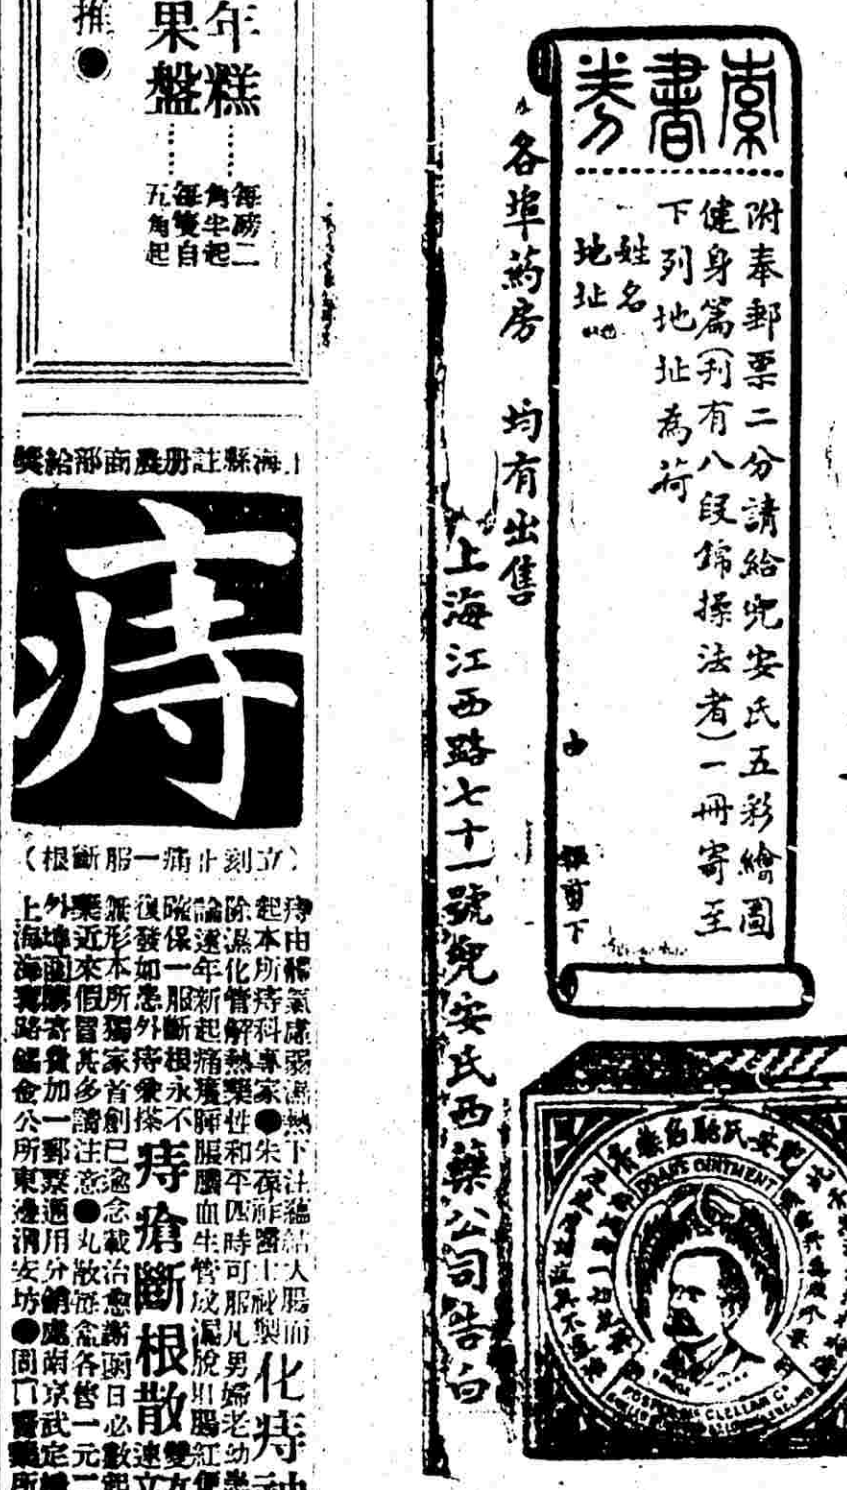 索書券
附奉郵票二分請給兜安氏五彩繪圖
健身篇(刋有八段錦操法者)一冊寄至
下列地址為荷
姓名
地址
由
剪下
各埠葯房 均有出售
上海江西路七十一號兜安氏西藥公司告白
DOAN'S OINTMENT
FOSTER McCLELLAN Co
年糕……每磅二角半起
果盤……每雙自五角起
推●
上海縣註册農商部給獎
痔
(立刻止痛一服斷根)
痔由體氣虛弱濕熱下注蘊結大腸而
起本所痔科專家●朱葆
化痔
除濕化管解熱藥性和平四時可服凡男婦老幼
論遠年新起痛癢腫脹膿血生管成漏脫肛腸紅便
確保一服斷根永不
復發如患外痔兼搽
痔瘡斷根散
雙方
速立
無形本所獨家首創已逾念載治愈謝函日必數起
藥近來假冒甚多請注意●丸散每盒各售一元二
外埠函購寄費加一郵票通用分銷處南京武定橋
上海海寧路錫金公所東邊洞安坊●周